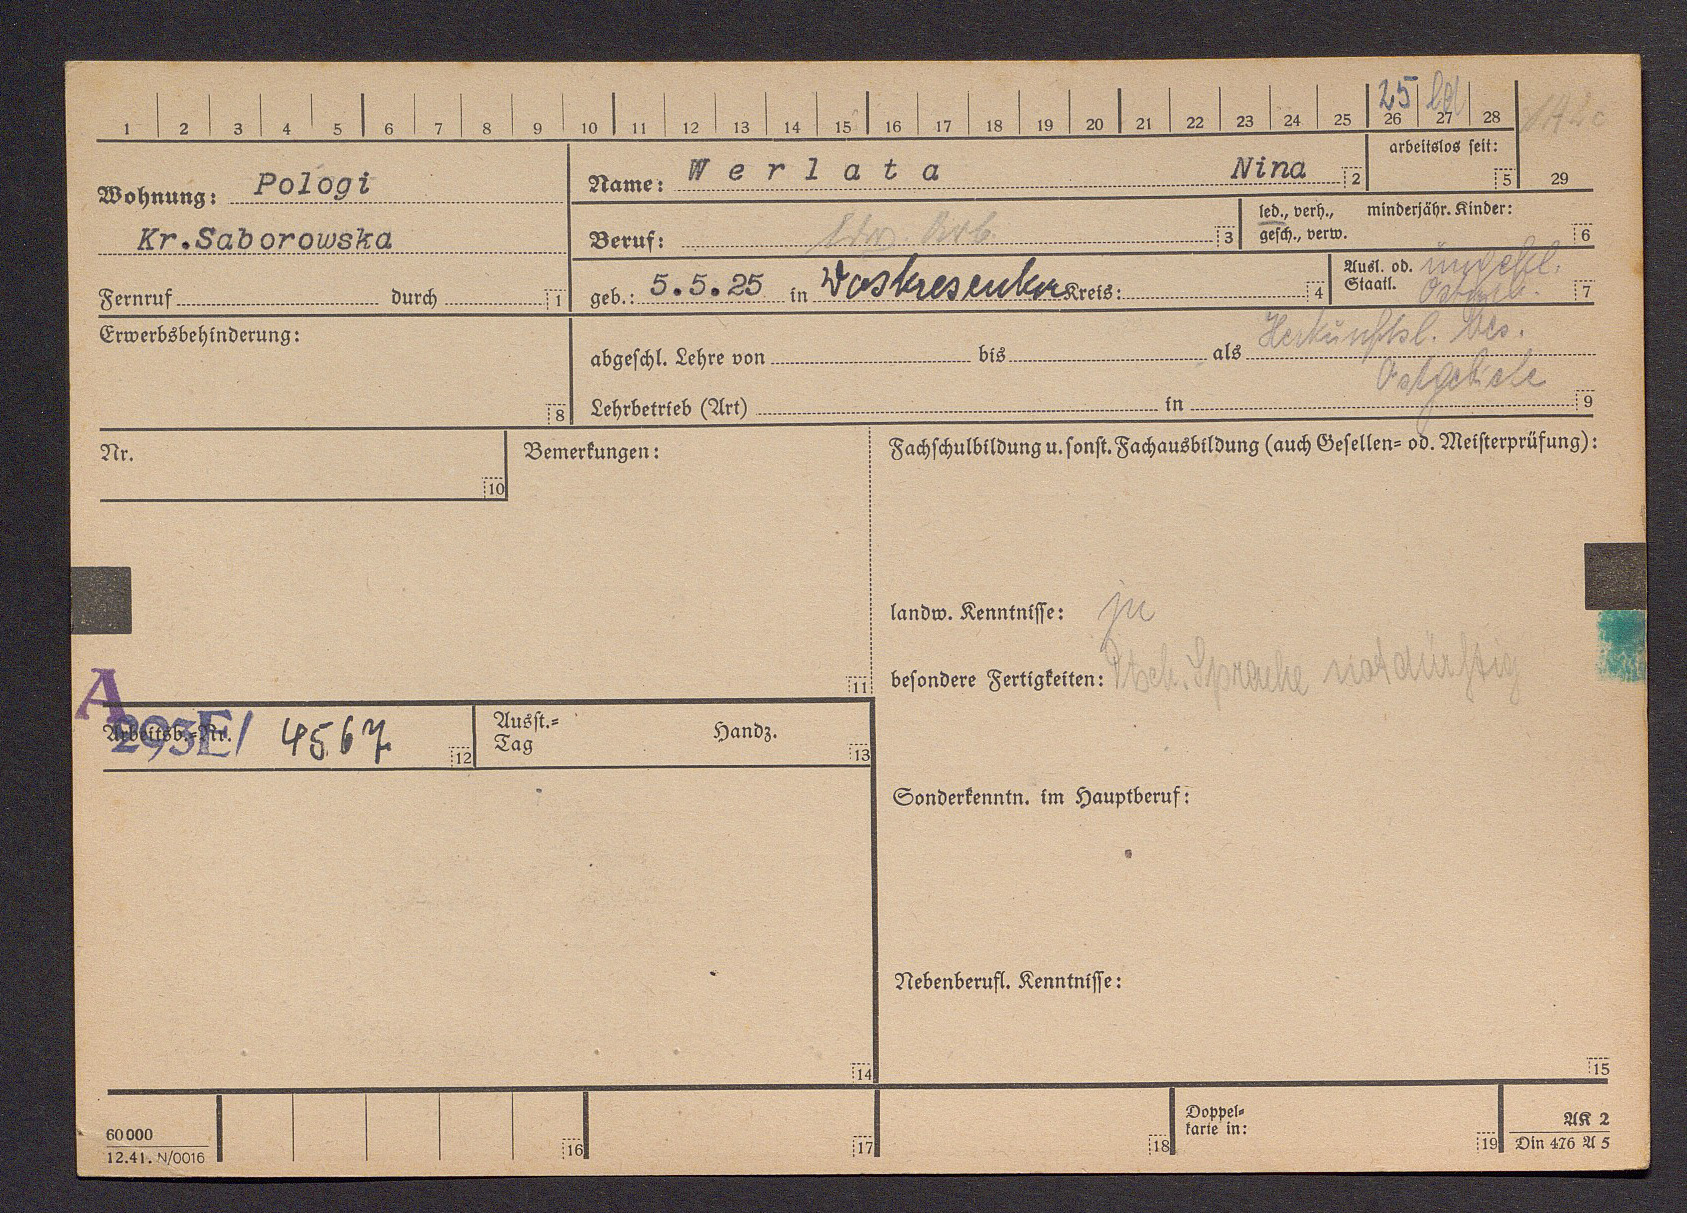 25 ld
1 2 3 4 5 6 7 8 9 10 11 12 13 14 15 16 17 18 19 20 21 22 23 24 25 26 27 28
arbeitslos seit:
5 29
Wohnung: Pologi
Kr.Saborowska
Fernruf durch 1
Name: Werlata Nina 2
Beruf: Ldw Arb. 3
led., verh., minderjähr. Kinder:
gesch., verw. 6
geb.: 5.5.25 in Woskresenka Kreis: 4
Ausl. od. ungekl.
Staatl. 7
Erwerbsbehinderung:
8
Herkunftsl. bes.
abgeschl. Lehre von bis als
Ostgebiete
Lehrbetrieb (Art) in 9
Nr.
10
Bemerkungen:
11
Fachschulbildung u. sonst. Fachausbildung (auch Gesellen- od. Meisterprüfung):
landw. Kenntnisse: ja
besondere Fertigkeiten: Dtsch. Sprache notdürftig
A
Arbeitsb.-Nr. 293E/ 4567 12
Ausst.-
Tag Handz. 13
Sonderkenntn. im Hauptberuf:
Nebenberufl. Kenntnisse:
14
15
60000
12.41. N/0016
16 17 18
Doppel-
karte in: 19
AK 2
Din 476 A 5